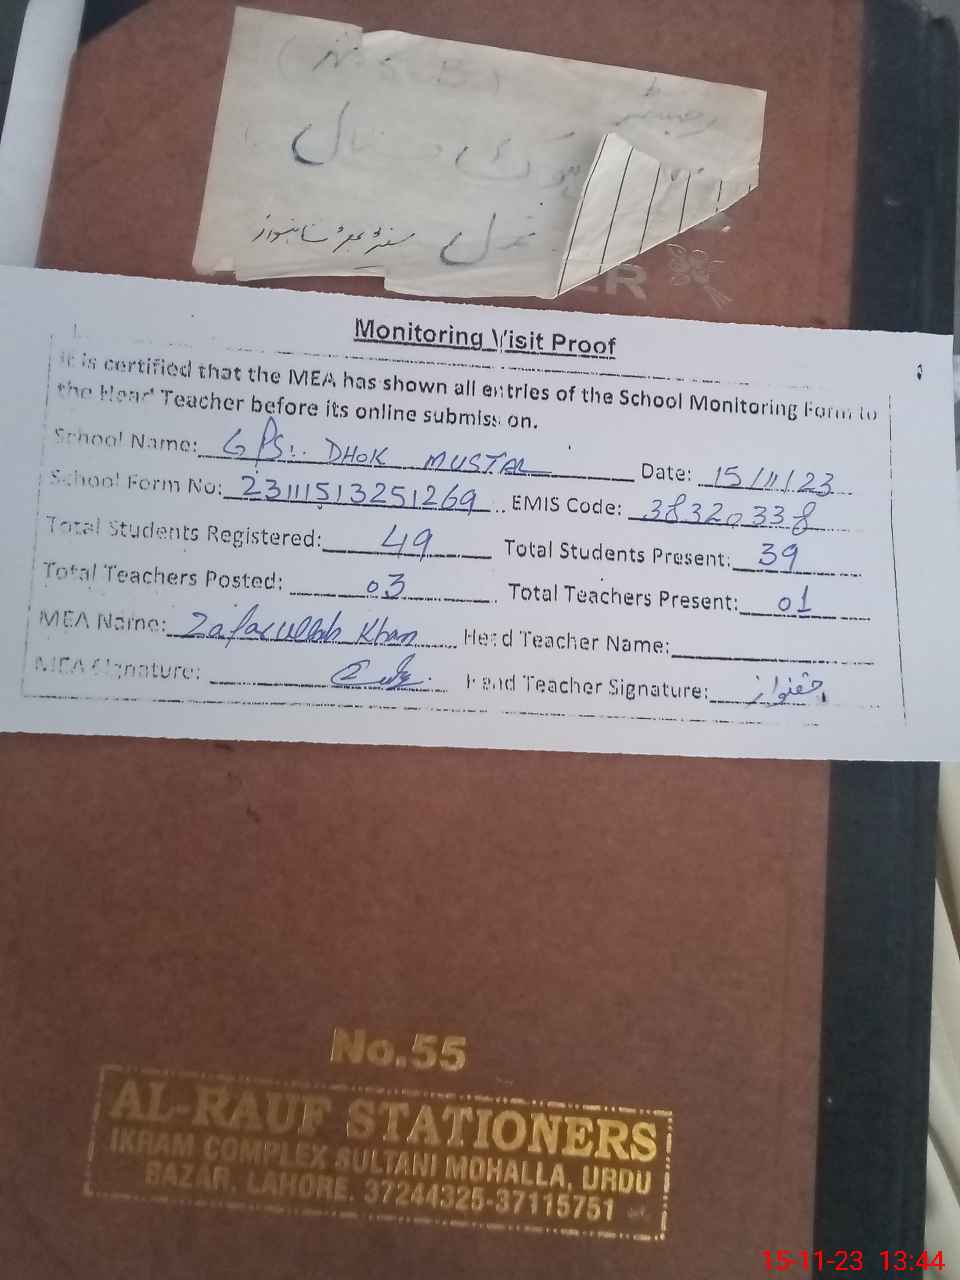 (N.S.B)
رجسٹر
ڈھوک مستال
Monitoring Visit Proof
It is certified that the MEA has shown all entries of the School Monitoring Form to
the Head Teacher before its online submission.
School Name: GPS: DHOK MUSTAL Date: 15/11/23
School Form No: 23111513251269 EMIS Code: 38320338
Total Students Registered: 49 Total Students Present: 39
Total Teachers Posted: 03 Total Teachers Present: 01
MEA Name: Zafarullah Khan Head Teacher Name:
MEA Signature: Head Teacher Signature: حقنواز
No.55
AL-RAUF STATIONERS
IKRAM COMPLEX SULTANI MOHALLA, URDU
BAZAR, LAHORE. 37244325-37115751
15-11-23 13:44